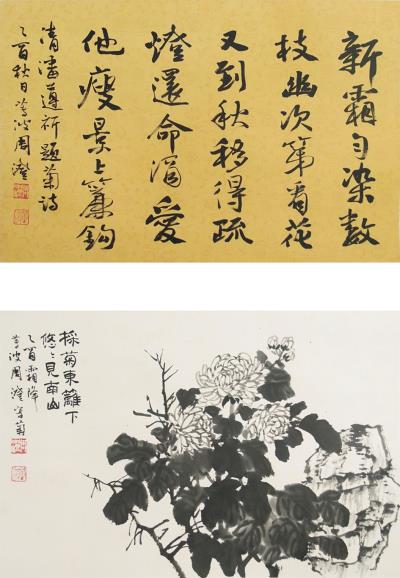 新霜勻染數
枝幽次第看花
又到秋移得疏
燈還命酒愛
他瘦景上簾鉤
清潘遵祁題菊詩
乙酉秋日蓴波周澄
採菊東籬下
悠々見南山
乙酉霜降
蓴波周澄寫菊